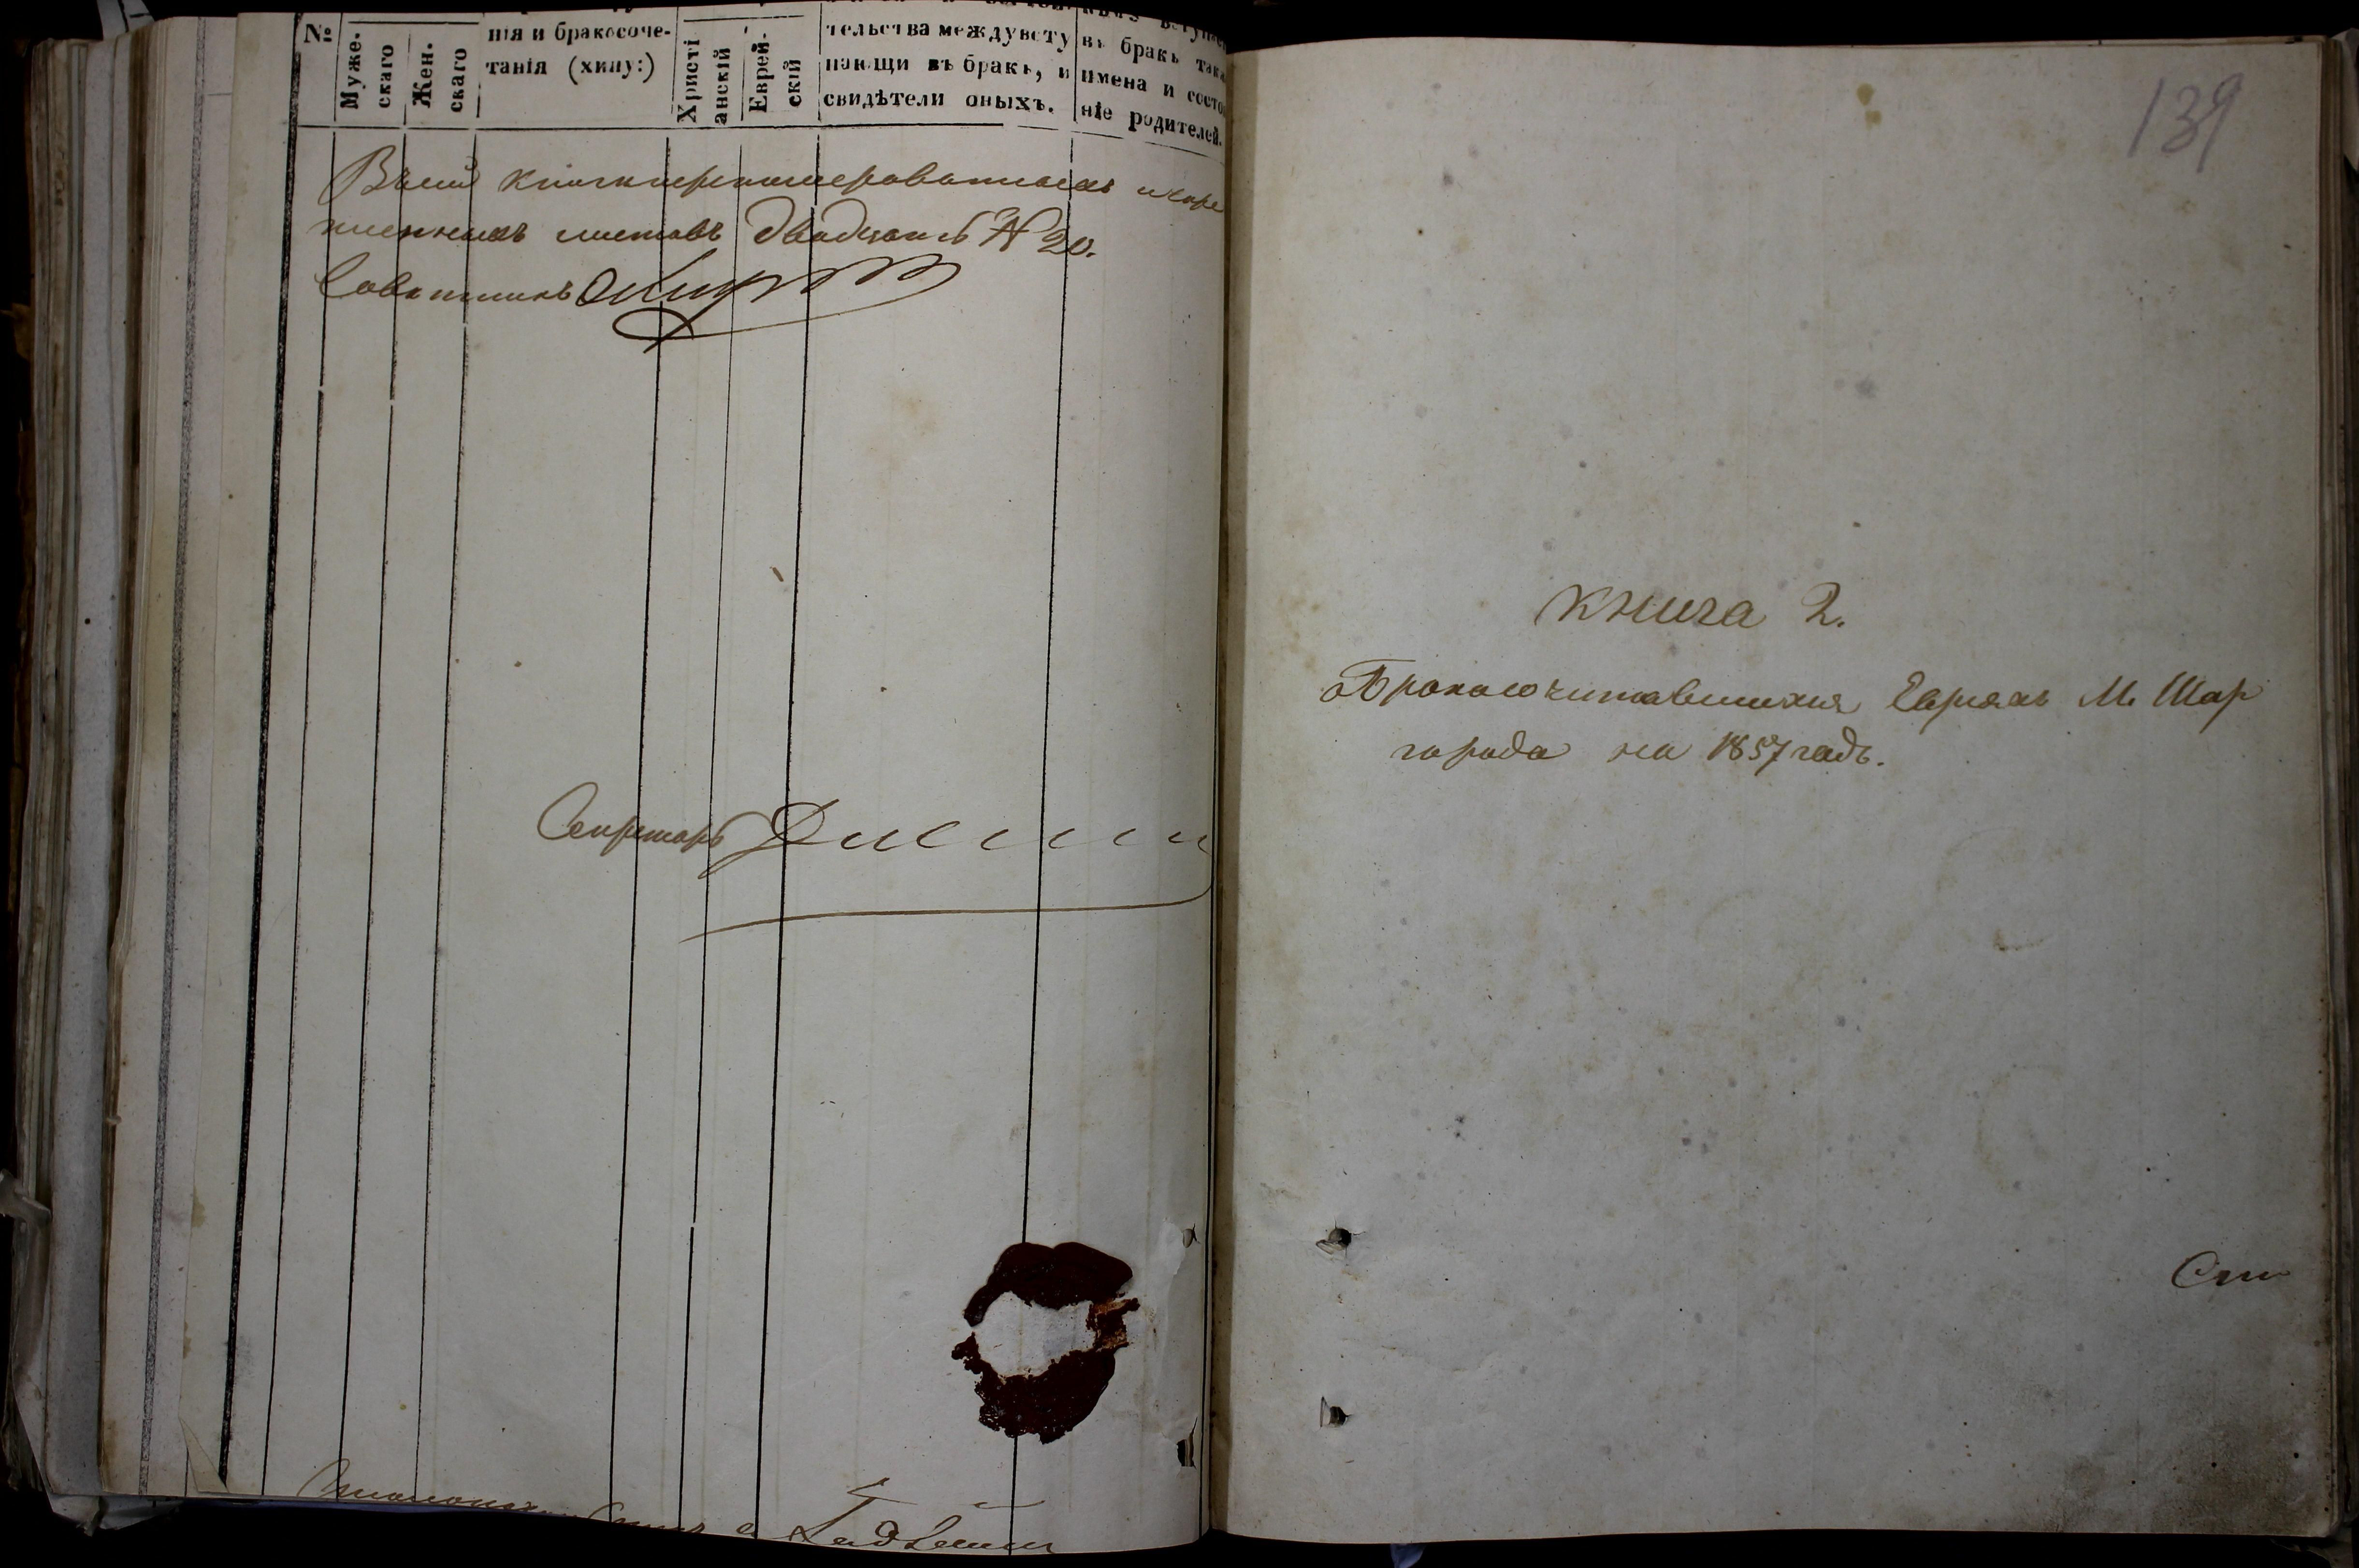 №
Муже.
скаго
Жен.
скаго
нія и бракосоче-
танія (хипу:)
Христі
анскій
Еврей-
скій
тельства междувсту
пающи въ бракъ, и
свидѣтели оныхъ.
въ бракъ так
имена и состо
ніе родителей.
Въ сей книгѣ перенумерованныхъ и скрѣ
пленныхъ листовъ двадцать № 20.
Совѣтникъ
Секретарь
139
Книга 2.
о Бракосочитавшихся Евреяхъ М. Шар
города на 1857 годъ.